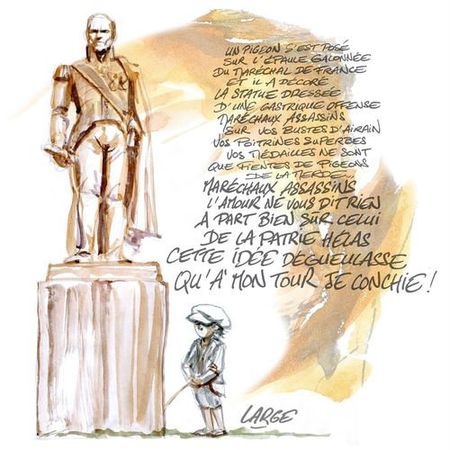 UN PIGEON S'EST POSÉ
SUR L'ÉPAULE GALONNÉE
DU MARÉCHAL DE FRANCE
ET IL A DÉCORÉ
LA STATUE DRESSÉE
D'UNE GASTRIQUE OFFENSE
MARÉCHAUX ASSASSINS
SUR VOS BUSTES D'AIRAIN
VOS POITRINES SUPERBES
VOS MÉDAILLES NE SONT
QUE FIENTES DE PIGEONS
DE LA MERDE...
MARÉCHAUX ASSASSINS
L'AMOUR NE VOUS DIT RIEN
À PART BIEN SÛR CELUI
DE LA PATRIE HÉLAS
CETTE IDÉE DÉGUEULASSE
QU'À MON TOUR JE CONCHIE !
LARGE